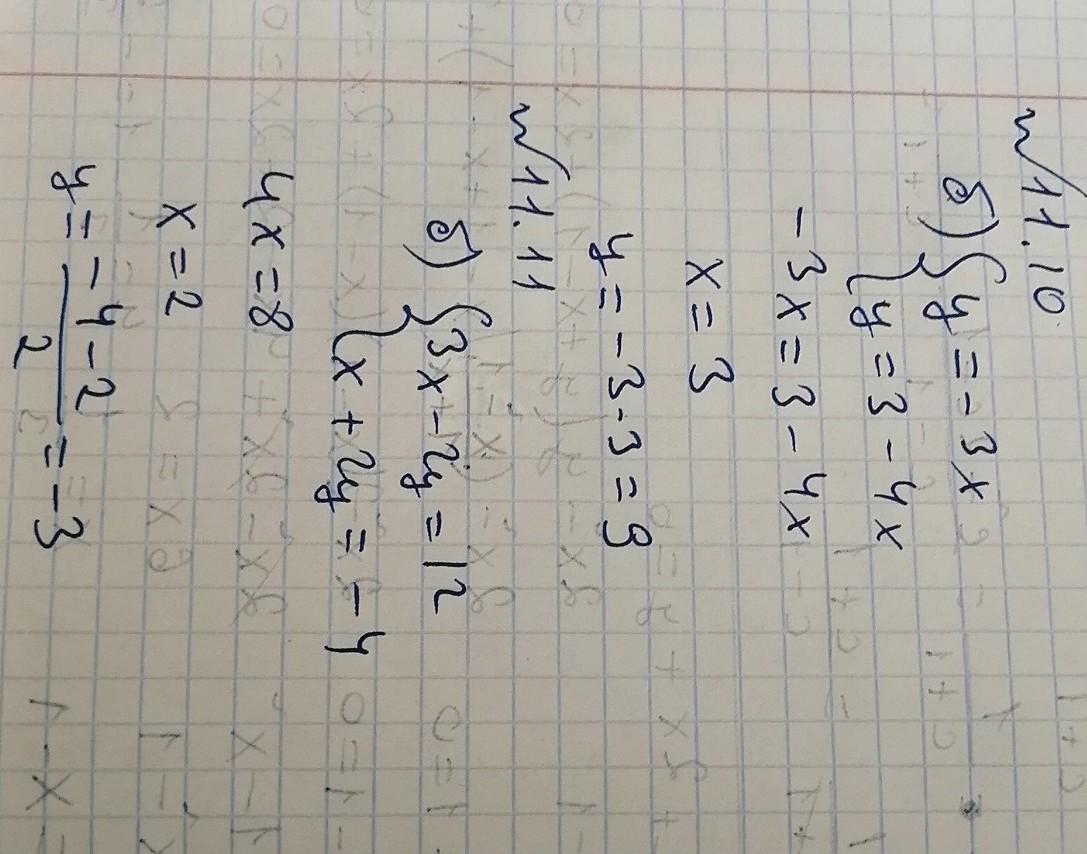 №11.10
б) { y = -3x
{ y = 3 - 4x
-3x = 3 - 4x
x = 3
y = -3·3 = 9
№11.11
б) { 3x - 2y = 12
{ x + 2y = -4
4x = 8
x = 2
y = -4-2/2 = -3